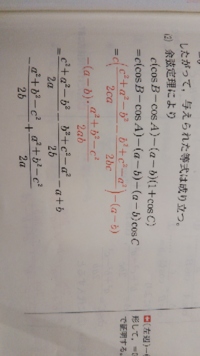 したがって,与えられた等式は成り立つ。
2) 余弦定理により
c(cosB−cosA)−(a−b)(1+cosC)
=c(cosB−cosA)−(a−b)−(a−b)cosC
=c((c²+a²−b²)/2ca−(b²+c²−a²)/2bc)−(a−b)
−(a−b)・(a²+b²−c²)/2ab
=(c²+a²−b²)/2a−(b²+c²−a²)/2b−a+b
−(a²+b²−c²)/2b+(a²+b²−c²)/2a
(左辺)−
形して,=
で証明する。